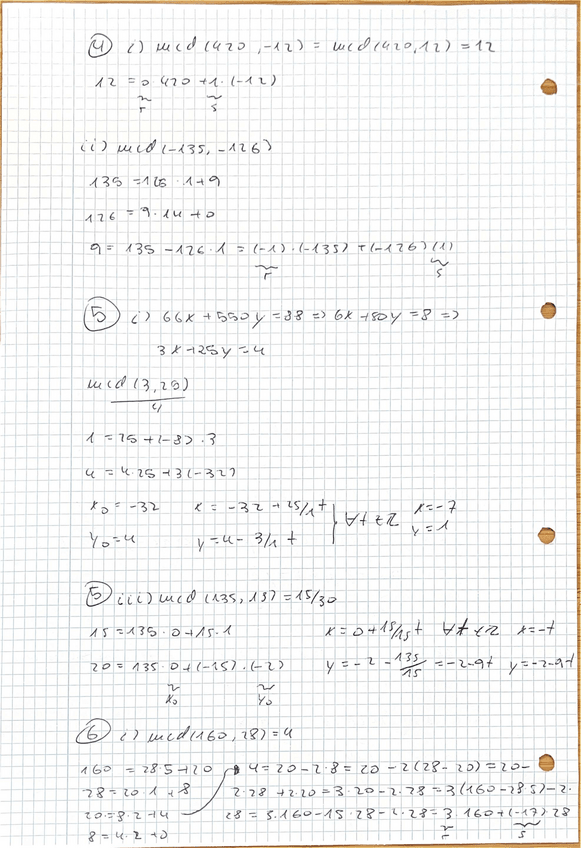 4 i) mcd(420, -12) = mcd(420, 12) = 12
12 = 0 420 + 1 · (-12)
r s
ii) mcd(-135, -126)
135 = 126 · 1 + 9
126 = 9 · 14 + 0
9 = 135 - 126 · 1 = (-1) · (-135) + (-126)(1)
r s
5 i) 66x + 550y = 88 => 6x + 50y = 8 =>
3x + 25y = 4
mcd(3, 25)
4
1 = 25 + (-8) · 3
4 = 4 · 25 + 3(-32)
x₀ = -32 x = -32 + 25/1 t ∀t ∈ Z x = -7
y₀ = 4 y = 4 - 3/1 t y = 1
5 iii) mcd(135, 15) = 15/30
15 = 135 · 0 + 15 · 1 x = 0 + 15/15 t ∀t ∈ Z x = -t
20 = 135 · 0 + (-15) · (-2) y = -2 - 135/15 = -2 - 9t y = -2 - 9t
x₀ y₀
6 i) mcd(160, 28) = 4
160 = 28 · 5 + 20 4 = 20 - 2 · 8 = 20 - 2(28 - 20) = 20 -
28 = 20 · 1 + 8 2 · 28 + 2 · 20 = 3 · 20 - 2 · 28 = 3(160 - 28 · 5) - 2 ·
20 = 8 · 2 + 4 28 = 3 · 160 - 15 · 28 - 2 · 28 = 3 160 + (-17) 28
8 = 4 · 2 + 0 r s